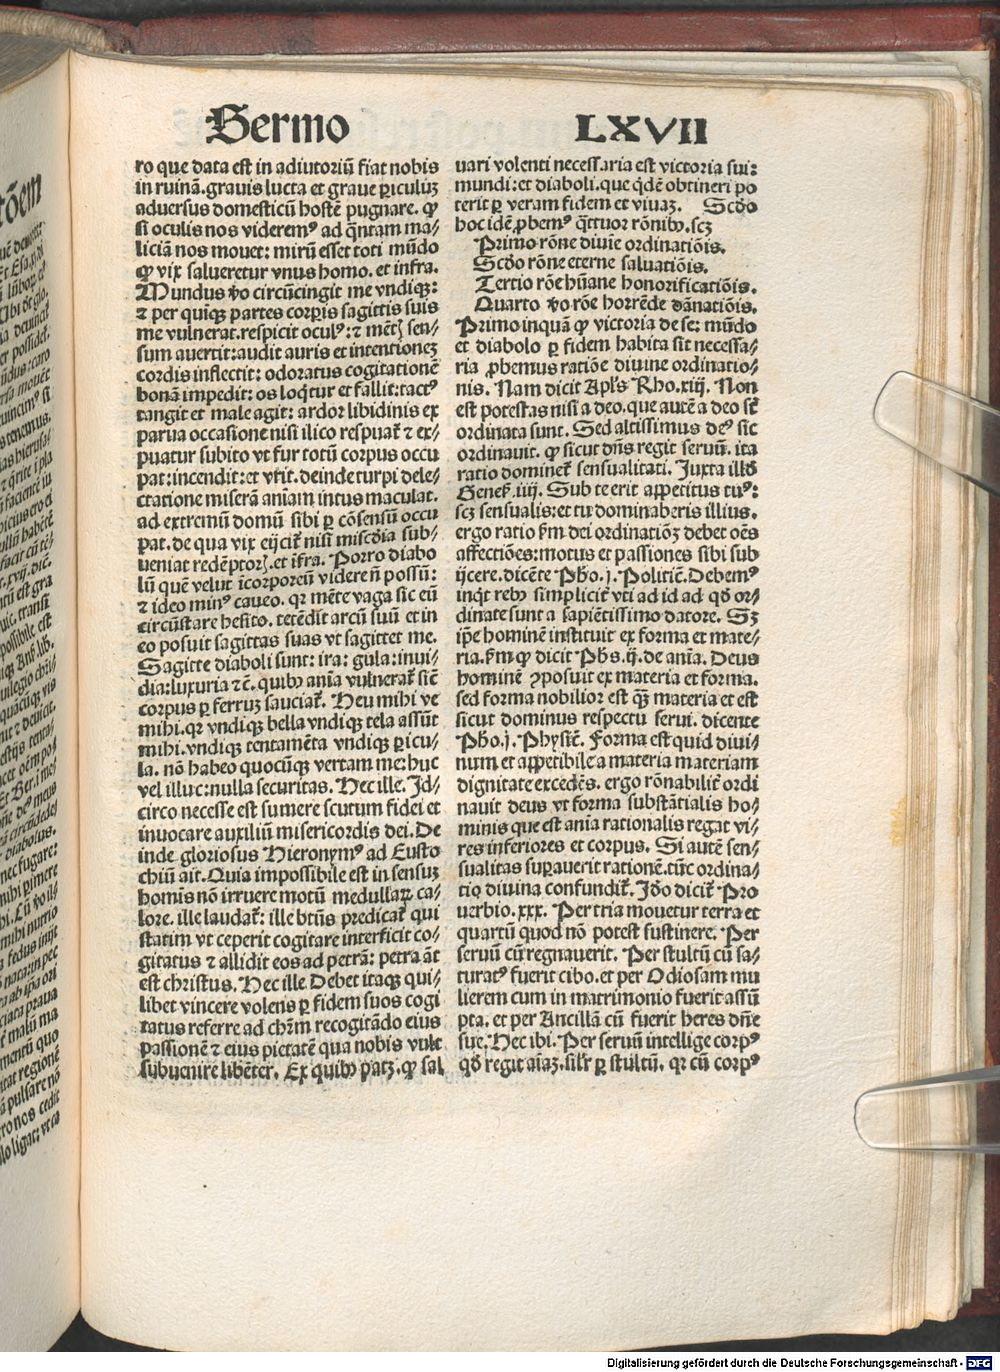 Sermo LXVII
ro que data est in adiutoriū fiat nobis
in ruinā. grauis lucta et graue ꝑiculuꝫ
aduersus domesticū hostē pugnare. ꝙ
si oculis nos videremꝰ ad q̄ntam ma⸗
liciā nos mouet: mirū esset toti mūdo
ꝙ vix salueretur vnus homo. et infra.
Mundus ꝟo circūcingit me vndiqꝫ:
⁊ per quiqꝫ partes corꝑis sagittis suis
me vulnerat. respicit oculꝰ: ⁊ mētꝭ sen⸗
sum auertit: audit auris et intentioneꝫ
cordis inflectit: odoratus cogitationē
bonā impedit: os loq̄tur et fallit: tactꝰ
tangit et male agit: ardor libidinis ex
parua occasione nisi ilico respuat᷑ ⁊ ex⸗
puatur subito vt fur totū corpus occu
pat: incendit: et vrit. deinde turpi dele⸗
ctatione miserā aīam intus maculat.
ad extremū domū sibi ꝑ cōsensū occu
pat. de qua vix eijcit᷑ nisi miscd̄ia sub⸗
ueniat redēptorꝭ. et īfra. Porro diabo
lū quē velut īcorporeū viderē nō possū:
⁊ ideo minꝰ caueo. qꝛ mēte vaga sic eū
circūstare hesito. tetēdit arcū suū et in
eo posuit sagittas suas vt sagittet me.
Sagitte diaboli sunt: ira: gula: inui⸗
dia: luxuria ⁊c̄. quibꝫ aīa vulnerat᷑ sic̄
corpus ꝑ ferruꝫ sauciat᷑. Heu mihi ve
mihi. qꝛ vndiqꝫ bella vndiqꝫ tela assūt
mihi. vndiqꝫ tentamēta vndiqꝫ ꝑicu⸗
la. nō habeo quocūqꝫ vertam me: huc
vel illuc: nulla securitas. Hec ille. Id⸗
circo necesse est sumere scutum fidei et
inuocare auxiliū misericordis dei. De
inde gloriosus Hieronymꝰ ad Eusto
chiū ait. Quia impossibile est in sensuꝫ
homīs nō irruere motū medullaꝝ ca⸗
lore. ille laudat᷑: ille btūs predicat᷑ qui
statim vt ceperit cogitare interficit co⸗
gitatus ⁊ allidit eos ad petrā: petra āt
est christus. Hec ille Debet itaqꝫ qui⸗
libet vincere volens ꝑ fidem suos cogi
tatus referre ad chr̄m recogitādo eius
passionē ⁊ eius pietatē qua nobis vult
subuenire libēter. Ex quibꝫ patꝫ. ꝙ sal
uari volenti necessaria est victoria sui:
mundi: et diaboli. que qdē obtineri po
terit ꝑ veram fidem et viuaꝫ. Scd̄o
hoc idē ꝓbemꝰ q̄ttuor rōnibꝫ. scꝫ
Primo rōne diuīe ordinatiōis.
Scd̄o rōne eterne saluatiōis.
Tertio rōe hūane honorificatiōis.
Quarto ꝟo rōe horrēde dānatiōis.
Primo inquā ꝙ victoria de se: mūdo
et diabolo ꝑ fidem habita sit necessa⸗
ria ꝓbemus ratiōe diuine ordinatio⸗
nis. Nam dicit Apl's Rho. xiij. Non
est potestas nisi a deo. que autē a deo st̄
ordinata sunt. Sed altissimus deꝰ sic
ordinauit. ꝙ sicut dn̄s regit seruū. ita
ratio dominet᷑ sensualitati. Juxta illd̄
Geneß. iiij. Sub te erit appetitus tuꝰ:
scꝫ sensualis: et tu dominaberis illius.
ergo ratio ẜm dei ordinatiōꝫ debet oēs
affectiōes: motus et passiones sibi sub
ijcere. dicēte Ph̄o. j. Politic̄. Debemꝰ
inqt rebꝫ simplicit᷑ vti ad id ad qd̄ or⸗
dinate sunt a sapiētissimo datore. Sꝫ
ip̄e hominē instituit ex forma et mate⸗
ria. ẜm ꝙ dicit Ph̄s. ij. de aīa. Deus
hominē ꝯposuit ex materia et forma.
sed forma nobilior est qꝫ materia et est
sicut dominus respectu serui. dicente
Ph̄o. j. Physic̄. Forma est quid diui⸗
num et appetibile a materia materiam
dignitate excedēs. ergo rōnabilit᷑ ordi
nauit deus vt forma substātialis ho⸗
minis que est aīa rationalis regat vi⸗
res inferiores et corpus. Si autē sen⸗
sualitas suꝑauerit rationē. tūc ordina⸗
tio diuina confundit᷑. Iō dicit᷑ Pro
uerbio. xxx. Per tria mouetur terra et
quartū quod nō potest sustinere. Per
seruū cū regnauerit. Per stultū cū sa⸗
turatꝰ fuerit cibo. et per Odiosam mu
lierem cum in matrimonio fuerit assū
pta. et per Ancillā cū fuerit heres dn̄e
sue. Hec ibi. Per seruū intellige corpꝰ
qd̄ regit aīaꝫ. sil'r ꝑ stultū. qꝛ cū corpꝰ
Digitalisierung gefördert durch die Deutsche Forschungsgemeinschaft - DFG